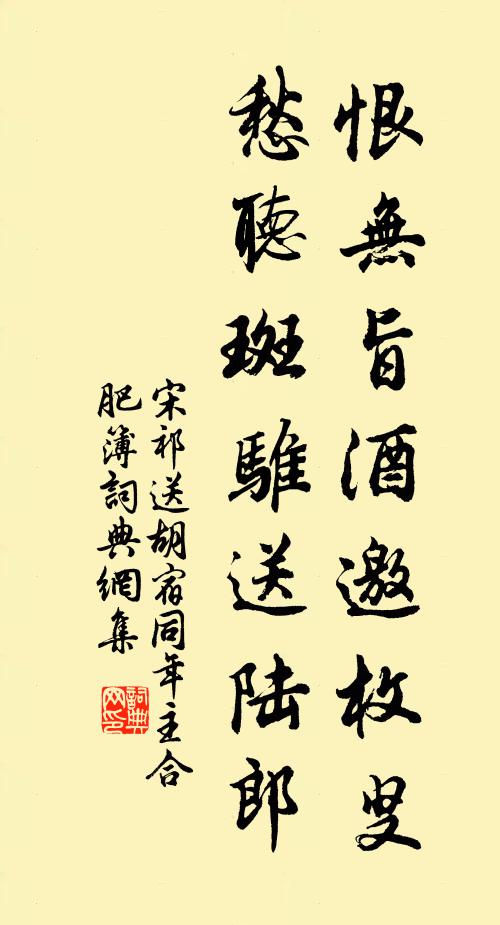 恨無旨酒邀枚叟
愁聽斑騅送陆郎
宋祁送胡宿同年主合
肥簿詞典網集
詞典网印